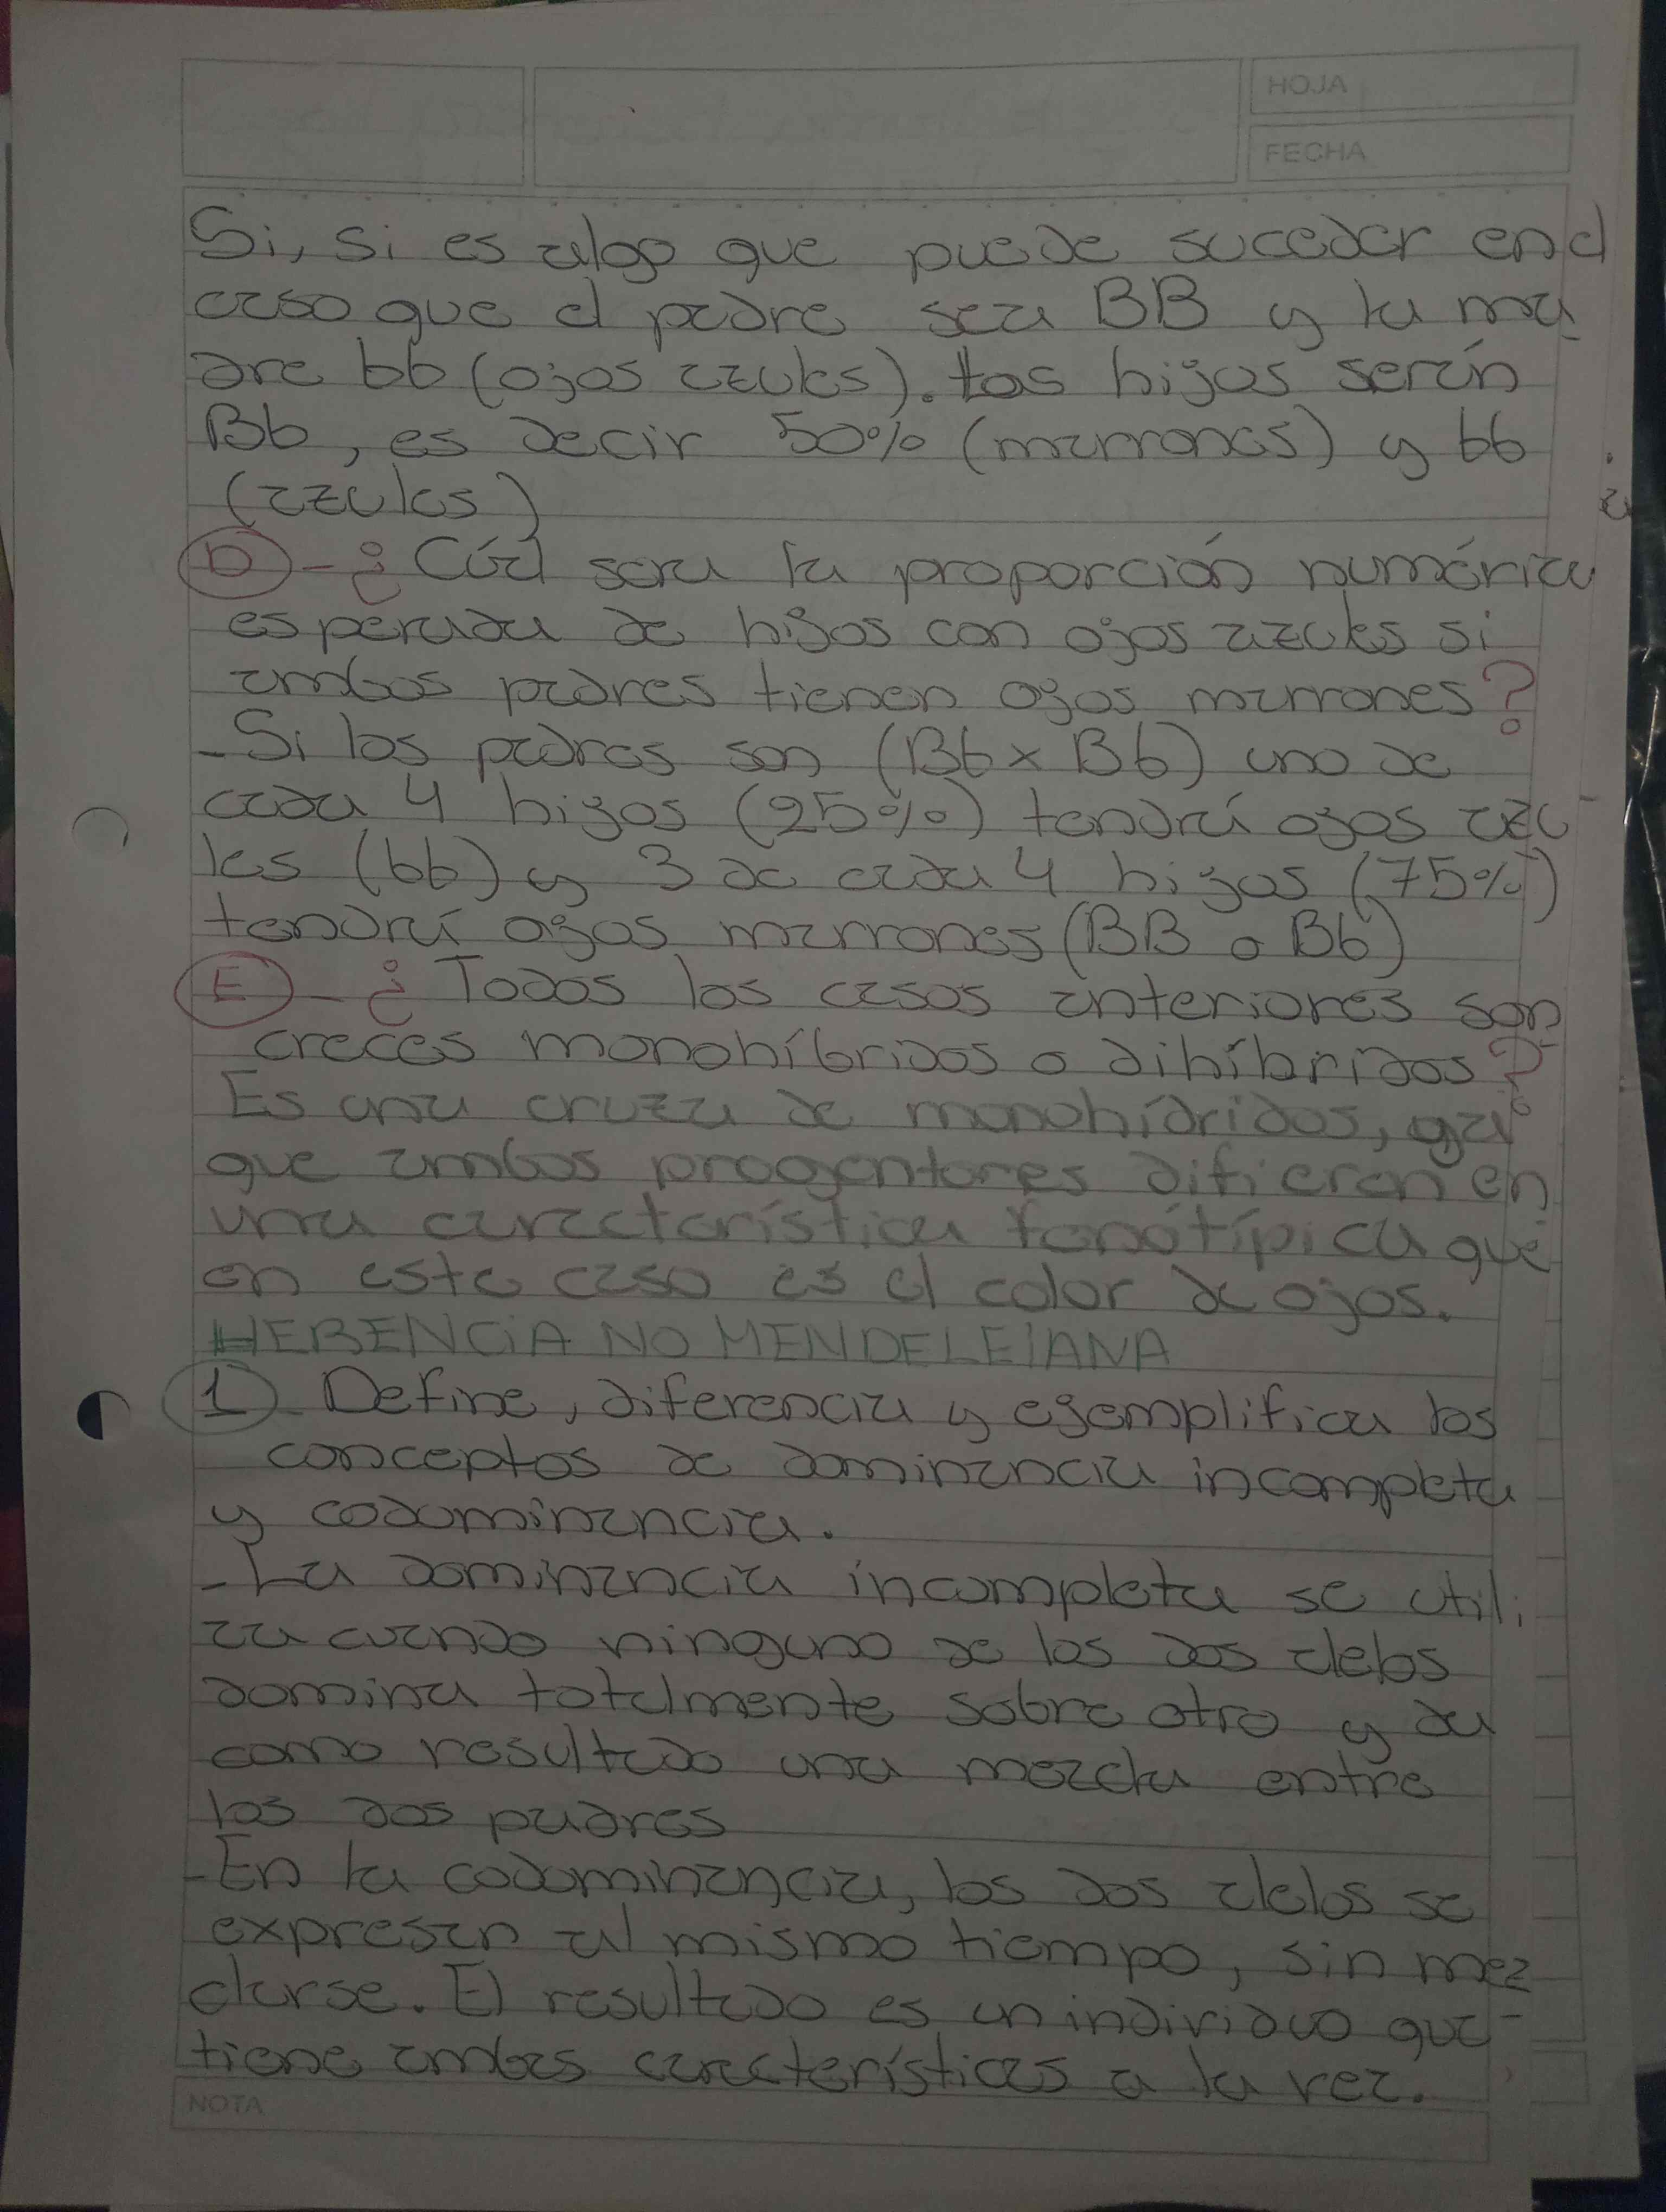 HOJA
FECHA
Si, si es algo que puede suceder en el
caso que el padre sea BB y la ma
dre bb (ojos azules). los hijos serán
Bb, es decir 50% (marrones) y bb
(azules)
D - ¿Cúal sera la proporción numérica
esperada de hijos con ojos azules si
ambos padres tienen ojos marrones?
- Si los padres son (Bb x Bb) uno de
cada 4 hijos (25%) tendrá ojos azu
les (bb) y 3 de cada 4 hijos (75%)
tendrá ojos marrones (BB o Bb)
E - ¿Todos los casos anteriores son
creces monohíbridos o dihíbridos?
Es una cruza de monohídridos, ya
que ambos progentores difieren en
una característica fenótípica que
en este caso es el color de ojos.
HERENCiA NO MENDELEIANA
1 Define, diferencia y ejemplifica los
conceptos de dominancia incompleta
y codominancia.
- La dominancia incompleta se utili
za cuando ninguno de los dos alelos
domina totalmente sobre otro y da
como resultado una mezcla entre
los dos padres
- En la codominancia, los dos alelos se
expresan al mismo tiempo, sin mez
clarse. El resultado es un individuo que
tiene ambas características a la vez.
NOTA